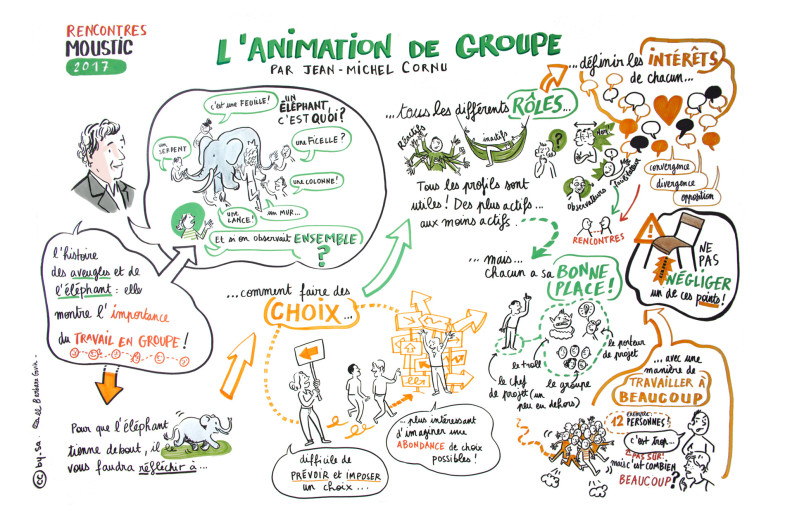 RENCONTRES
MOUSTIC
2017
L'ANIMATION DE GROUPE
PAR JEAN-MICHEL CORNU
c'est une FEUILLE!
UN
ÉLÉPHANT,
C'EST QUOI?
UN
SERPENT
une FICELLE?
une COLONNE!
UNE
LANCE!
un MUR...
Et si on observait ENSEMBLE
?
l'histoire
des aveugles et de
l'éléphant: elle
montre l'importance
du TRAVAIL EN GROUPE!
Pour que l'éléphant
tienne debout, il
vous faudra réfléchir à...
...comment faire des
CHOIX...
difficile de
PRÉVOIR et IMPOSER
un choix...
...plus intéressant
d'imaginer une
ABONDANCE de choix
possibles!
...tous les différents RÔLES...
Réactifs
inactifs
?
NON!
observateurs
Tous les profils sont
utiles! Des plus actifs...
aux moins actifs.
...définir les INTÉRÊTS
de chacun...
convergence
divergence
opposition
RENCONTRES
mais...
chacun a sa BONNE
PLACE!
le troll
le chef
de projet (un
peu en dehors)
le groupe
le porteur
de projet
!
NE
PAS
NÉGLIGER
un de ces points!
...avec une
manière de
TRAVAILLER À
BEAUCOUP
12 PERSONNES
c'est trop...
PAS SUR!
mais c'est COMBIEN
BEAUCOUP?
cc by.sa